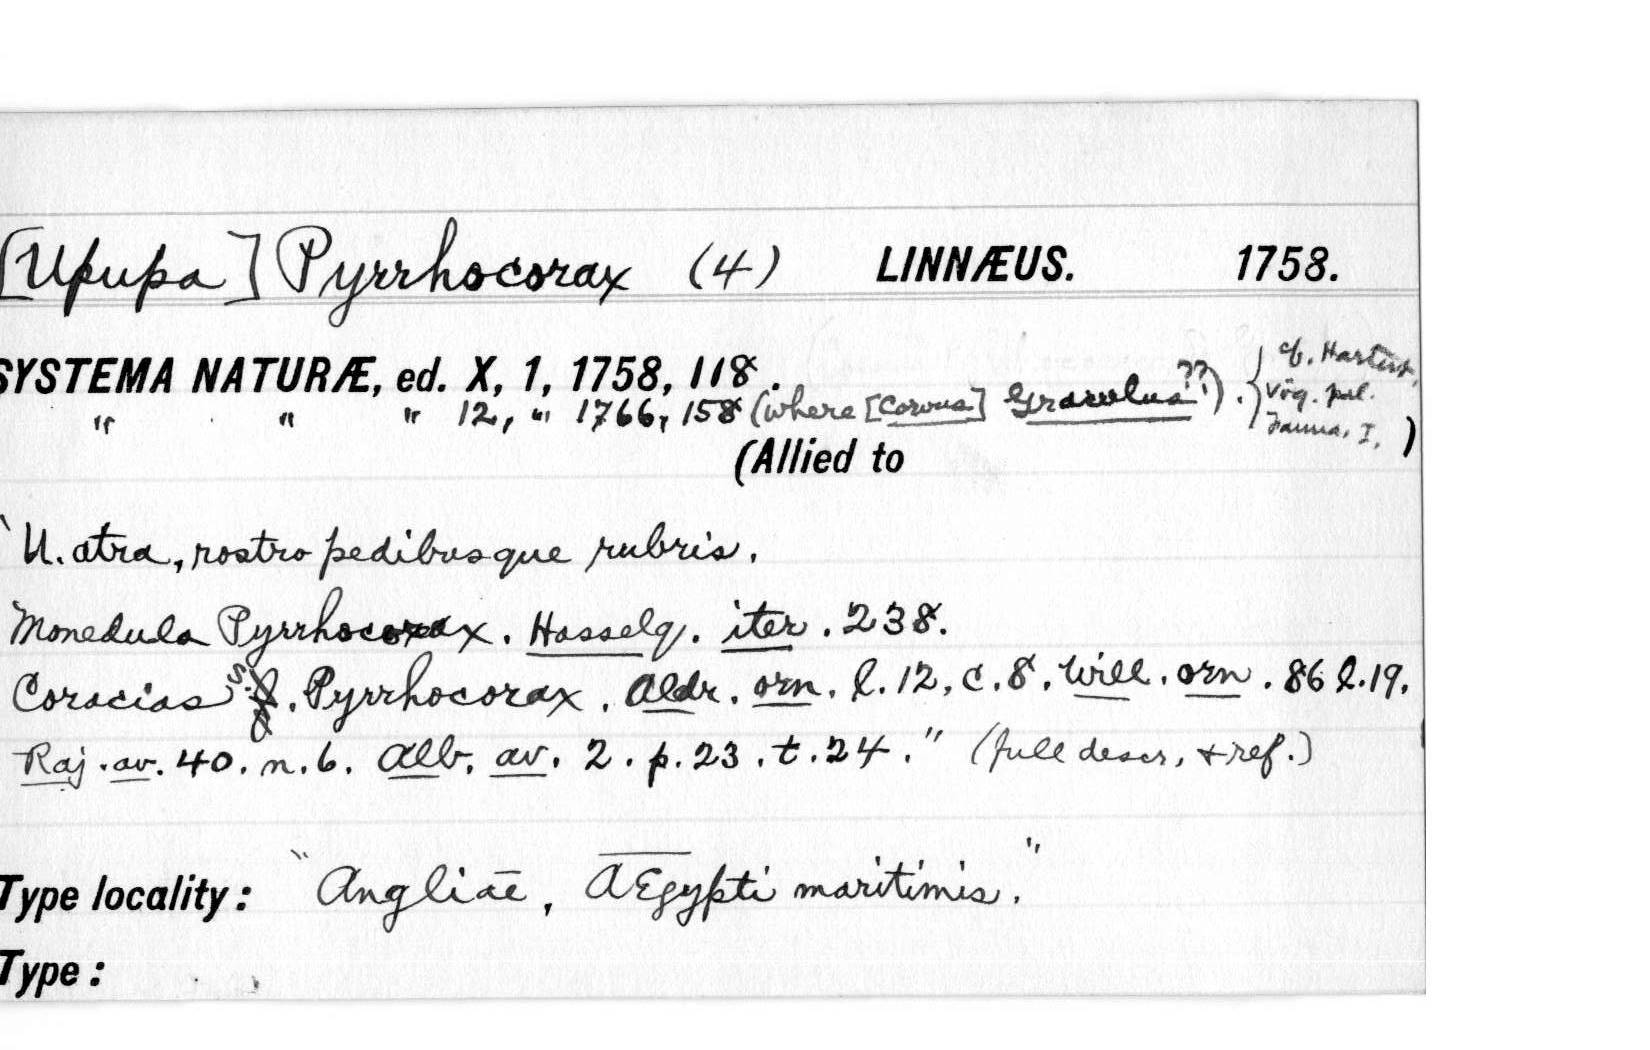 [Upupa] Pyrrhocorax (4) LINNÆUS. 1758.
SYSTEMA NATURÆ, ed. X, 1, 1758, 118.
" " " 12, " 1766, 158 (where [Corvus] Graculus??!). {cf. Hartert,
Vög. pal.
Fauna, I. )
(Allied to
"U. atra, rostro pedibusque rubris.
Monedula Pyrrhocorax. Hasselq. iter. 238.
Coracias s. Pyrrhocorax. Aldr. orn. l. 12, c. 8. Will. orn. 86 l. 19.
Raj. av. 40. n. 6. Alb. av. 2. p. 23. t. 24." (full descr. & ref.)
Type locality: "Angliae, AEgypti maritimis."
Type: